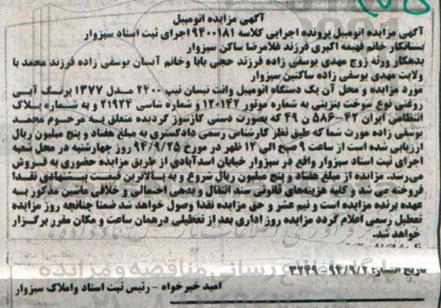 آگهی مزایده اتومبیل
آگهی مزایده اتومبیل پرونده اجرایی کلاسه ۹۴۰۰۱۸۱ اجرای ثبت اسناد سبزوار
بستانکار خانم فهیمه اکبری فرزند غلامرضا ساکن سبزوار
بدهکار ورثه زوج مهدی یوسفی زاده فرزند حجی بابا وخانم آیسان یوسفی زاده فرزند محمد با
ولایت مهدی یوسفی زاده ساکنین سبزوار
مورد مزایده و محل آن یک دستگاه اتومبیل وانت نیسان تیپ ۲۴۰۰ مدل ۱۳۷۷ برنگ آبی
روغنی نوع سوخت بنزینی به شماره موتور ۱۲۰۱۴۲ و شماره شاسی ۲۱۹۲۴ و به شماره پلاک
انتظامی ایران ۴۲-۵۸۶ ن ۴۹ که بصورت دستی گازسوز گردیده متعلق به مرحوم محمد
یوسفی زاده مورث شما که طبق نظر کارشناس رسمی دادگستری به مبلغ هفتاد و پنج میلیون ریال
ارزیابی شده است از ساعت ۹ صبح الی ۱۲ ظهر در مورخ ۹۴/۹/۲۵ روز چهارشنبه در محل شعبه
اجرای ثبت اسناد سبزوار واقع در سبزوار خیابان اسدآبادی از طریق مزایده حضوری به فروش
می‌رسد. مزایده از مبلغ هفتاد و پنج میلیون ریال شروع و به بالاترین قیمت پیشنهادی نقدا
فروخته می شد و کلیه هزینه‌های قانونی سند انتقال وبدهی احتمالی و خلافی ماشین مذکور به
عهده برنده مزایده است و نیم عشر و حق مزایده نقدا وصول خواهد شد ضمنا چنانچه روز مزایده
تعطیل رسمی اعلام گردد مزایده روز اداری بعد از تعطیلی درهمان ساعت و مکان مقرر برگزار
خواهد شد.
تاریخ انتشار: ۹۴/۹/۲- ۳۲۴۹
امید خیرخواه - رئیس ثبت اسناد واملاک سبزوار